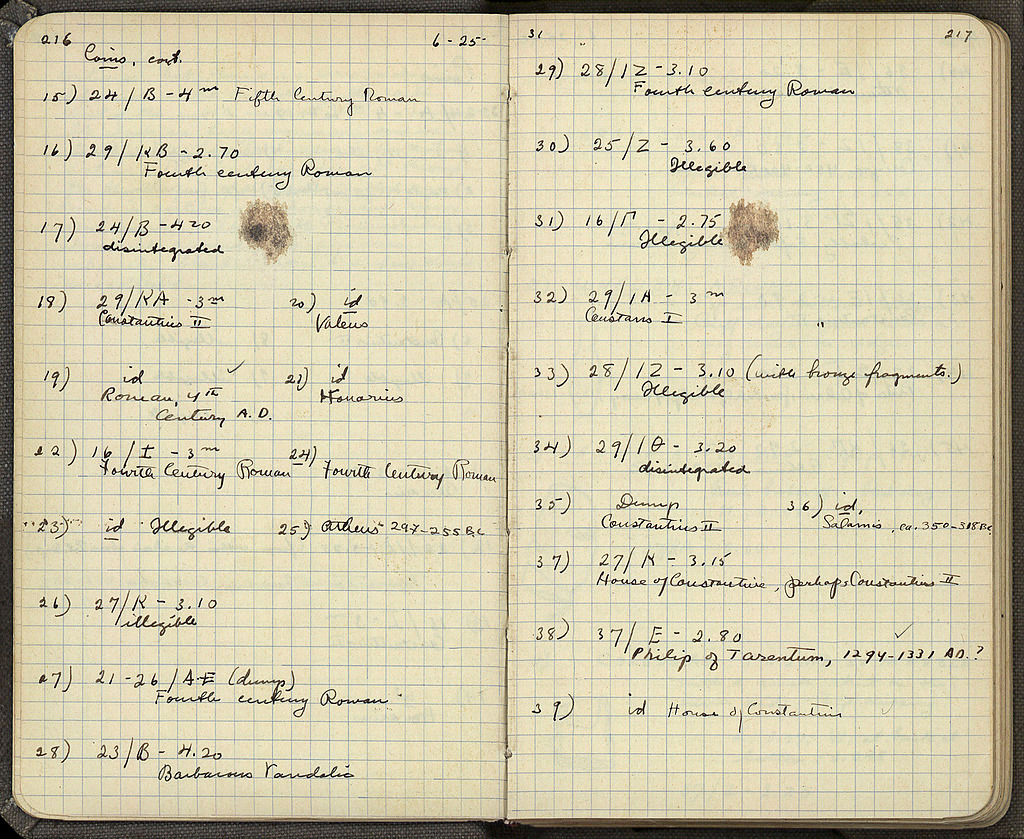 216
6-25-
Coins, cont.
15) 24/B - 4ᵐ Fifth Century Roman
16) 29/KB - 2.70
Fourth century Roman
17) 24/B - 420
disintegrated
18) 29/KA - 3ᵐ
Constantius II
20) id
Valens
19) id
Roman, 4th
Century A.D.
21) id
Honorius
22) 16/I - 3ᵐ
Fourth Century Roman
24)
Fourth Century Roman
23) id Illegible
25) Athens 297-255 B.C.
26) 27/K - 3.10
illegible
27) 21-26/A-E (dump)
Fourth century Roman
28) 23/B - 4.20
Barbarous Vandalic
31
217
29) 28/IZ - 3.10
Fourth century Roman
30) 25/Z - 3.60
Illegible
31) 16/Γ - 2.75
Illegible
32) 29/IA - 3ᵐ
Constans I
"
33) 28/IZ - 3.10 (with bronze fragments.)
Illegible
34) 29/IΘ - 3.20
disintegrated
35) Dump
Constantius II
36) id,
Salamis, ca. 350-318 B.C.
37) 27/K - 3.15
House of Constantine, perhaps Constantius II
38) 37/E - 2.80
Philip of Tarentum, 1294-1331 AD.?
39) id House of Constantine